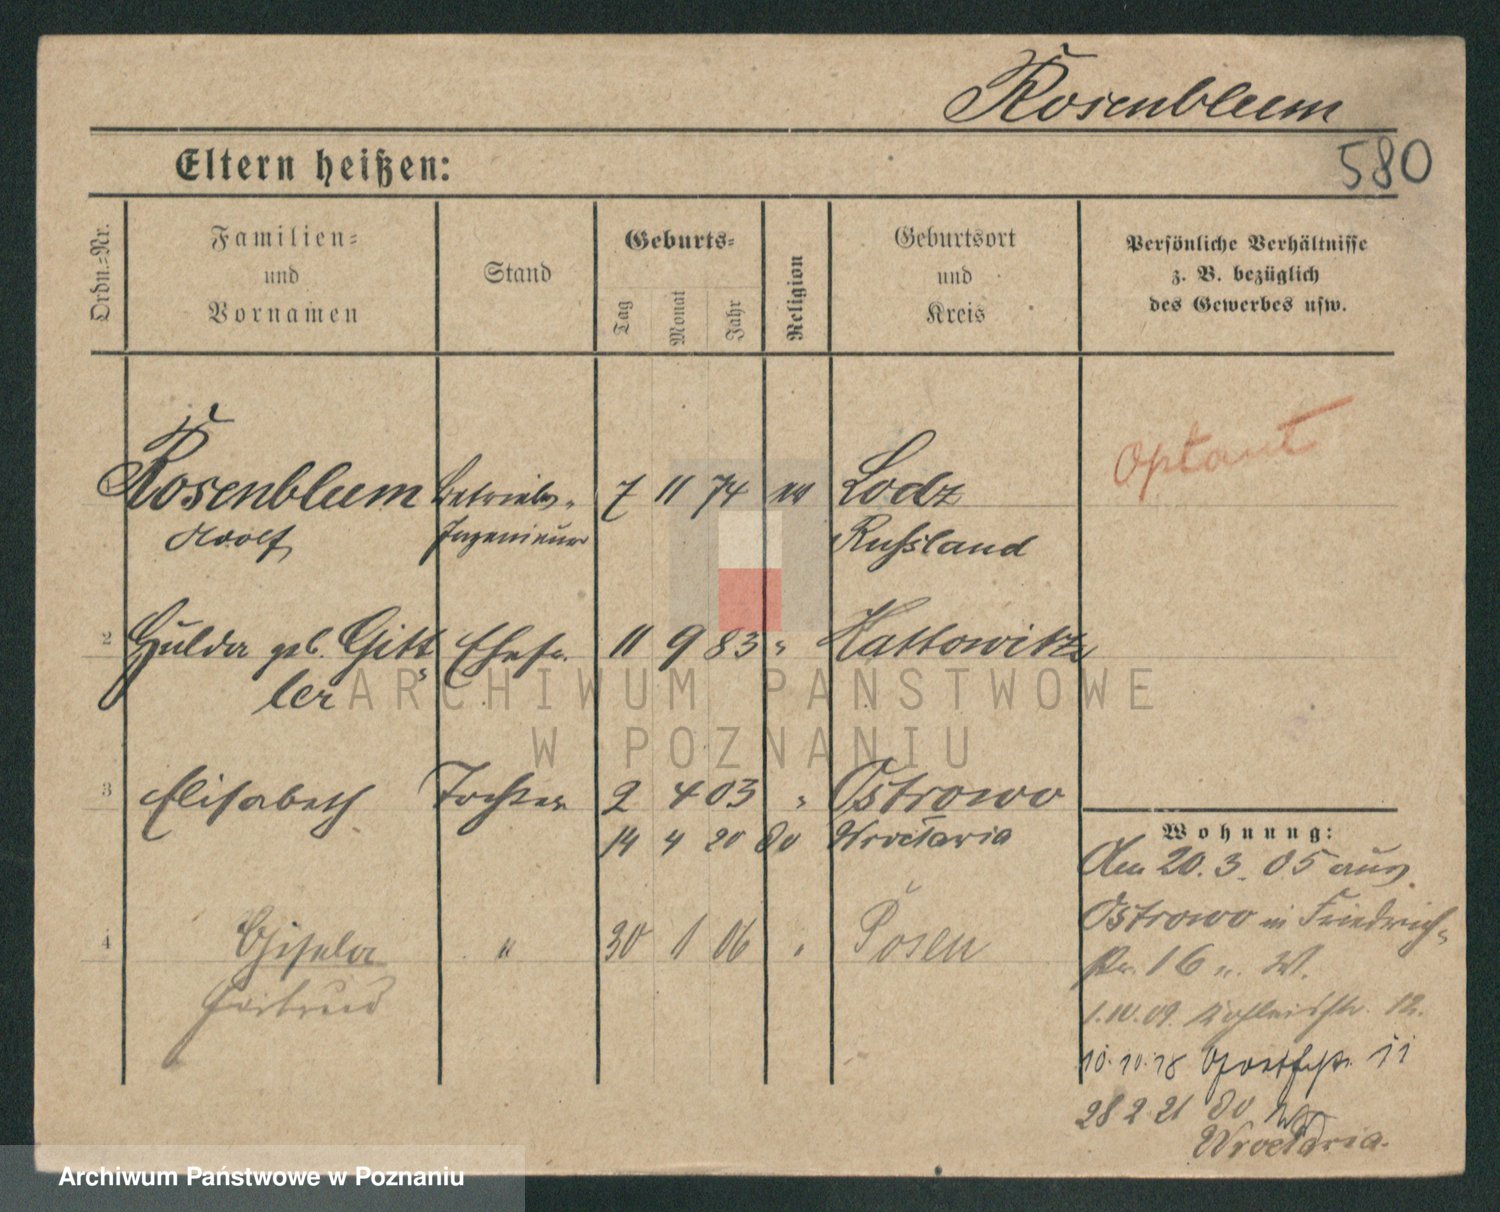 Rosenblum
580
Eltern heißen:
Ordn.-Nr.
Familien-
und
Vornamen
Stand
Geburts-
Tag
Monat
Jahr
Religion
Geburtsort
und
Kreis
Persönliche Verhältnisse
z. B. bezüglich
des Gewerbes usw.
Optant
Rosenblum Betriebs- 7 11 74 Lodz
Adolf Ingenieur Russland
2 Hulda geb. Gitt Ehefr. 11 9 83 " Kattowitz
ler
3 Elisabeth Tochter 2 4 03 " Ostrowo
14 4 20 do Wroclawia
4 Gisela " 30 1 06 " Posen
Gertrud
Wohnung:
Am 20. 3. 05 aus
Ostrowo in Friedrich-
str. 16 u. W.
1.IV.09. 12.
10.10.18 11
28 2 21 do
Wroclawia.
ARCHIWUM PAŃSTWOWE
W POZNANIU
Archiwum Państwowe w Poznaniu